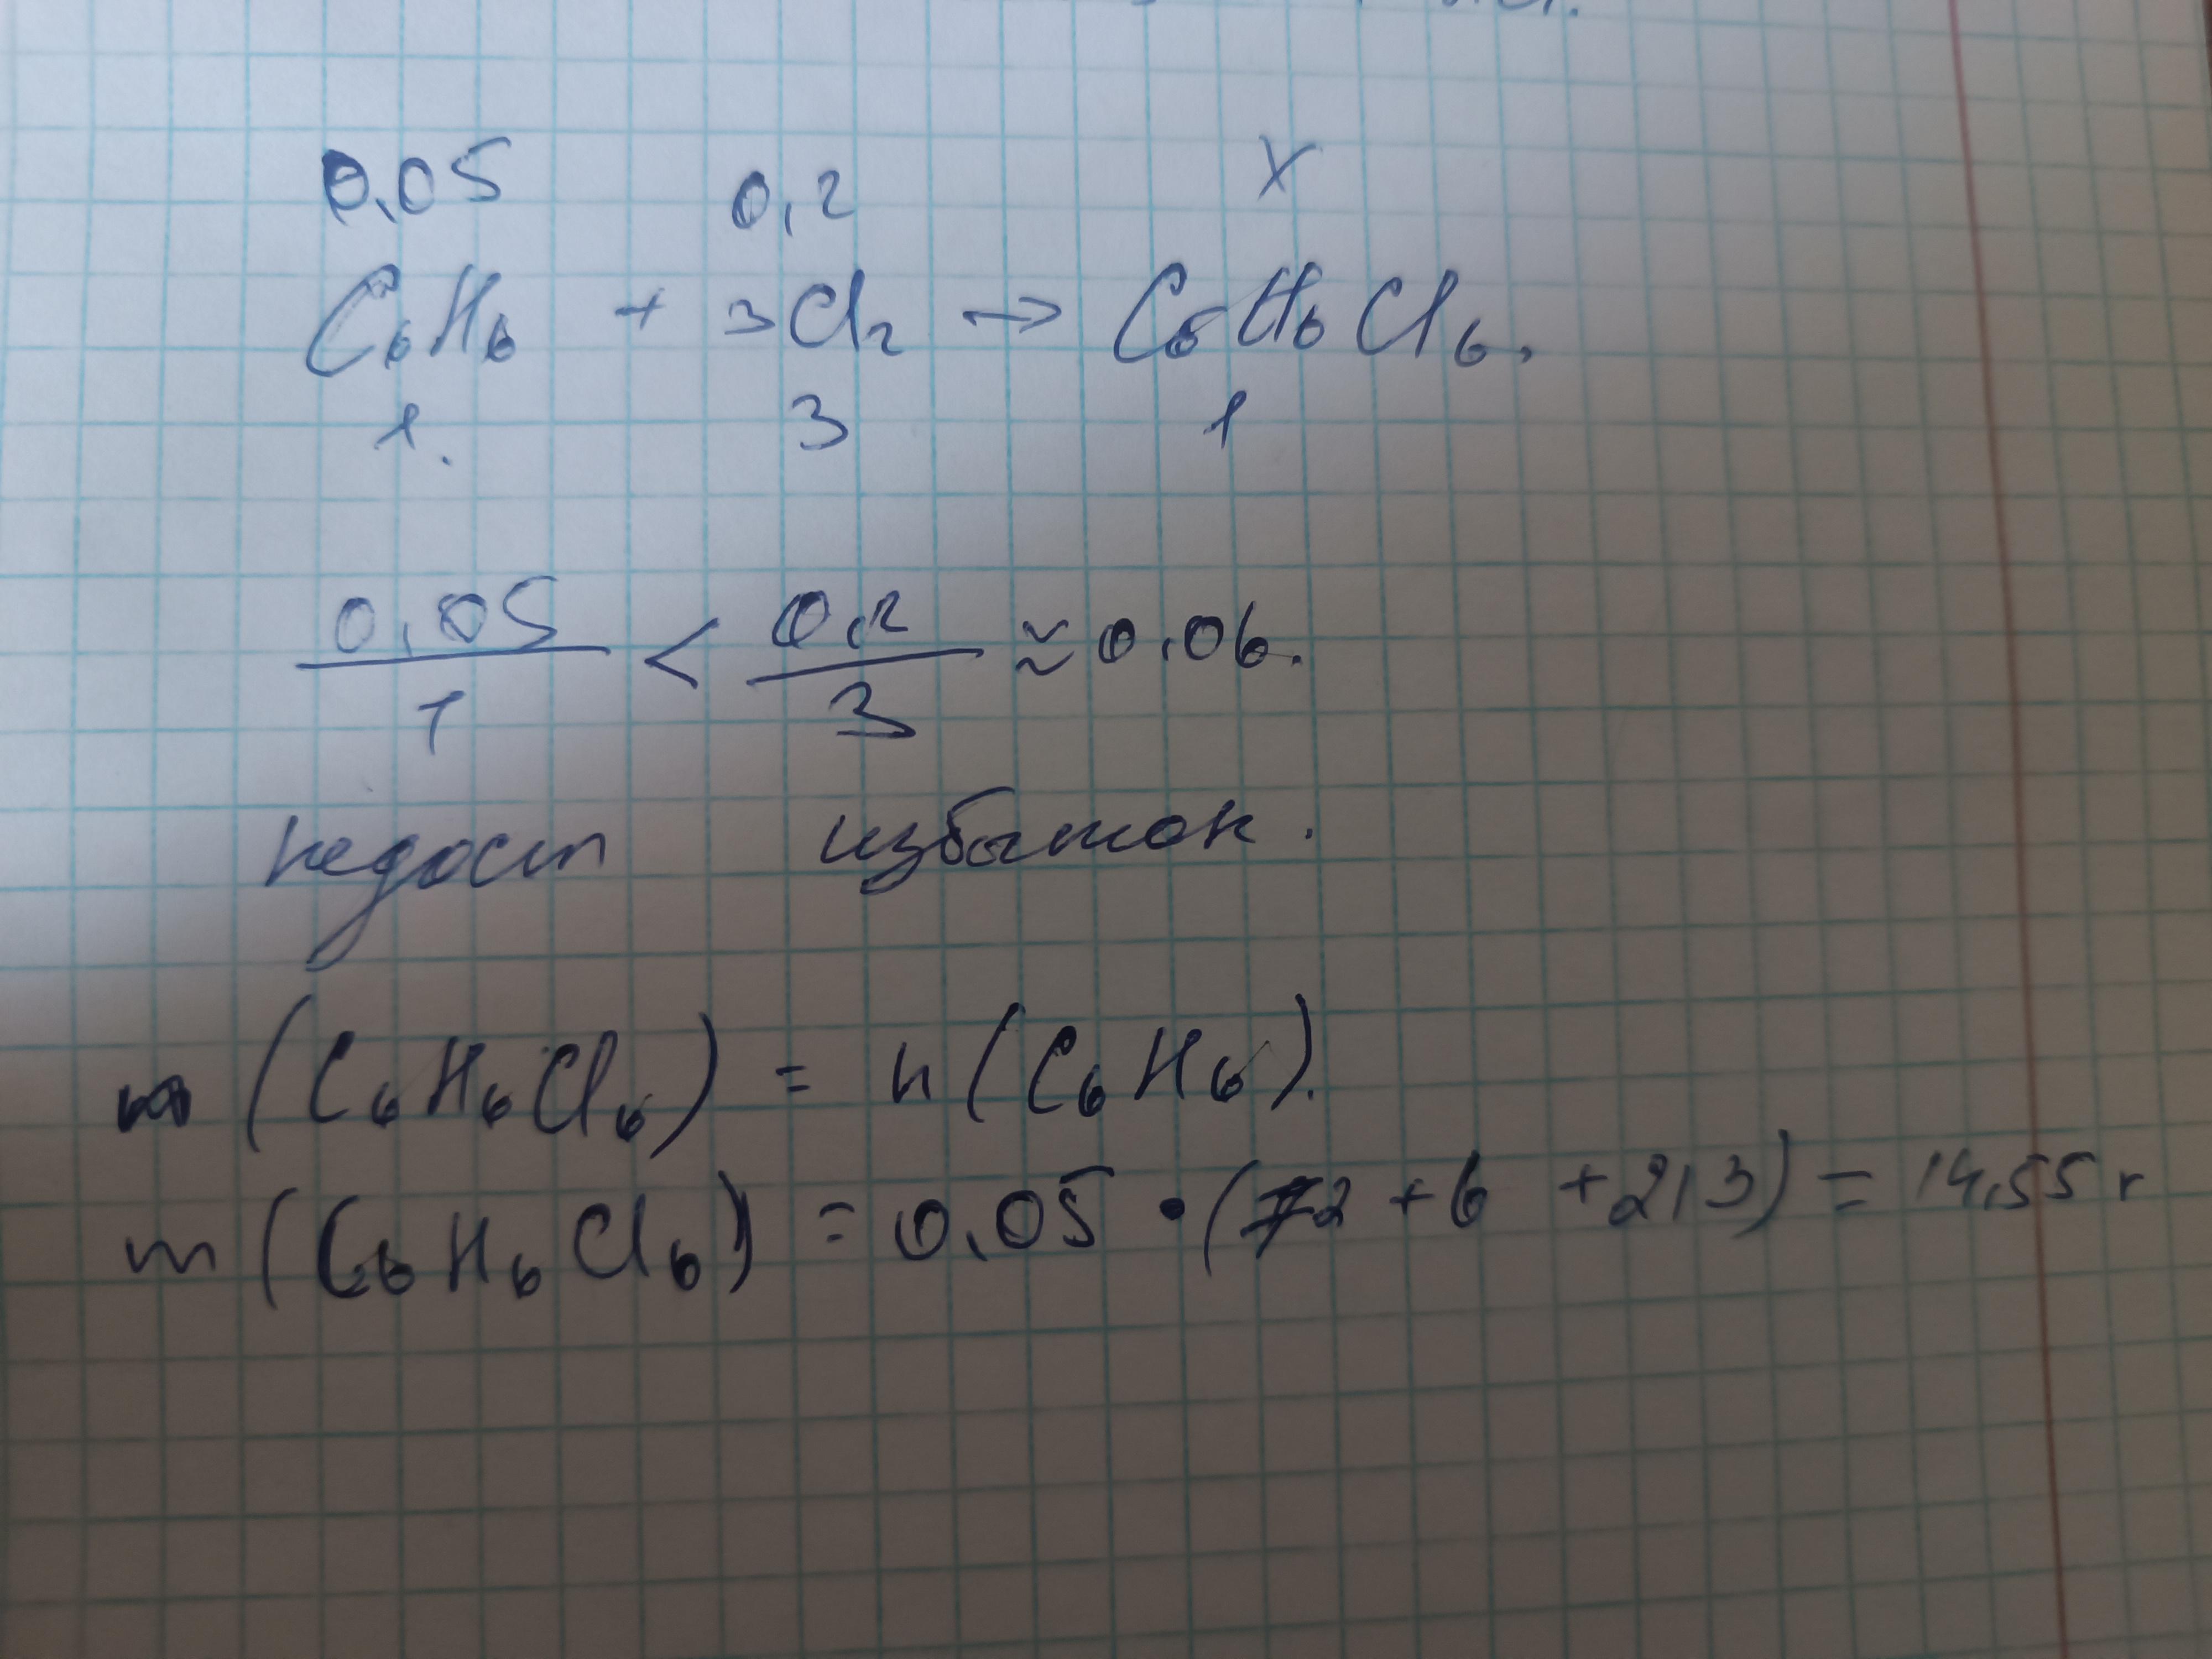 0,05 0,2 x
C6H6 + 3Cl2 → C6H6Cl6.
1. 3 1
0,05/1 < 0,2/3 ≈ 0,06.
недост избыток.
(C6H6Cl6) = n(C6H6).
m(C6H6Cl6) = 0,05 • (72 + 6 + 213) = 14,55 г